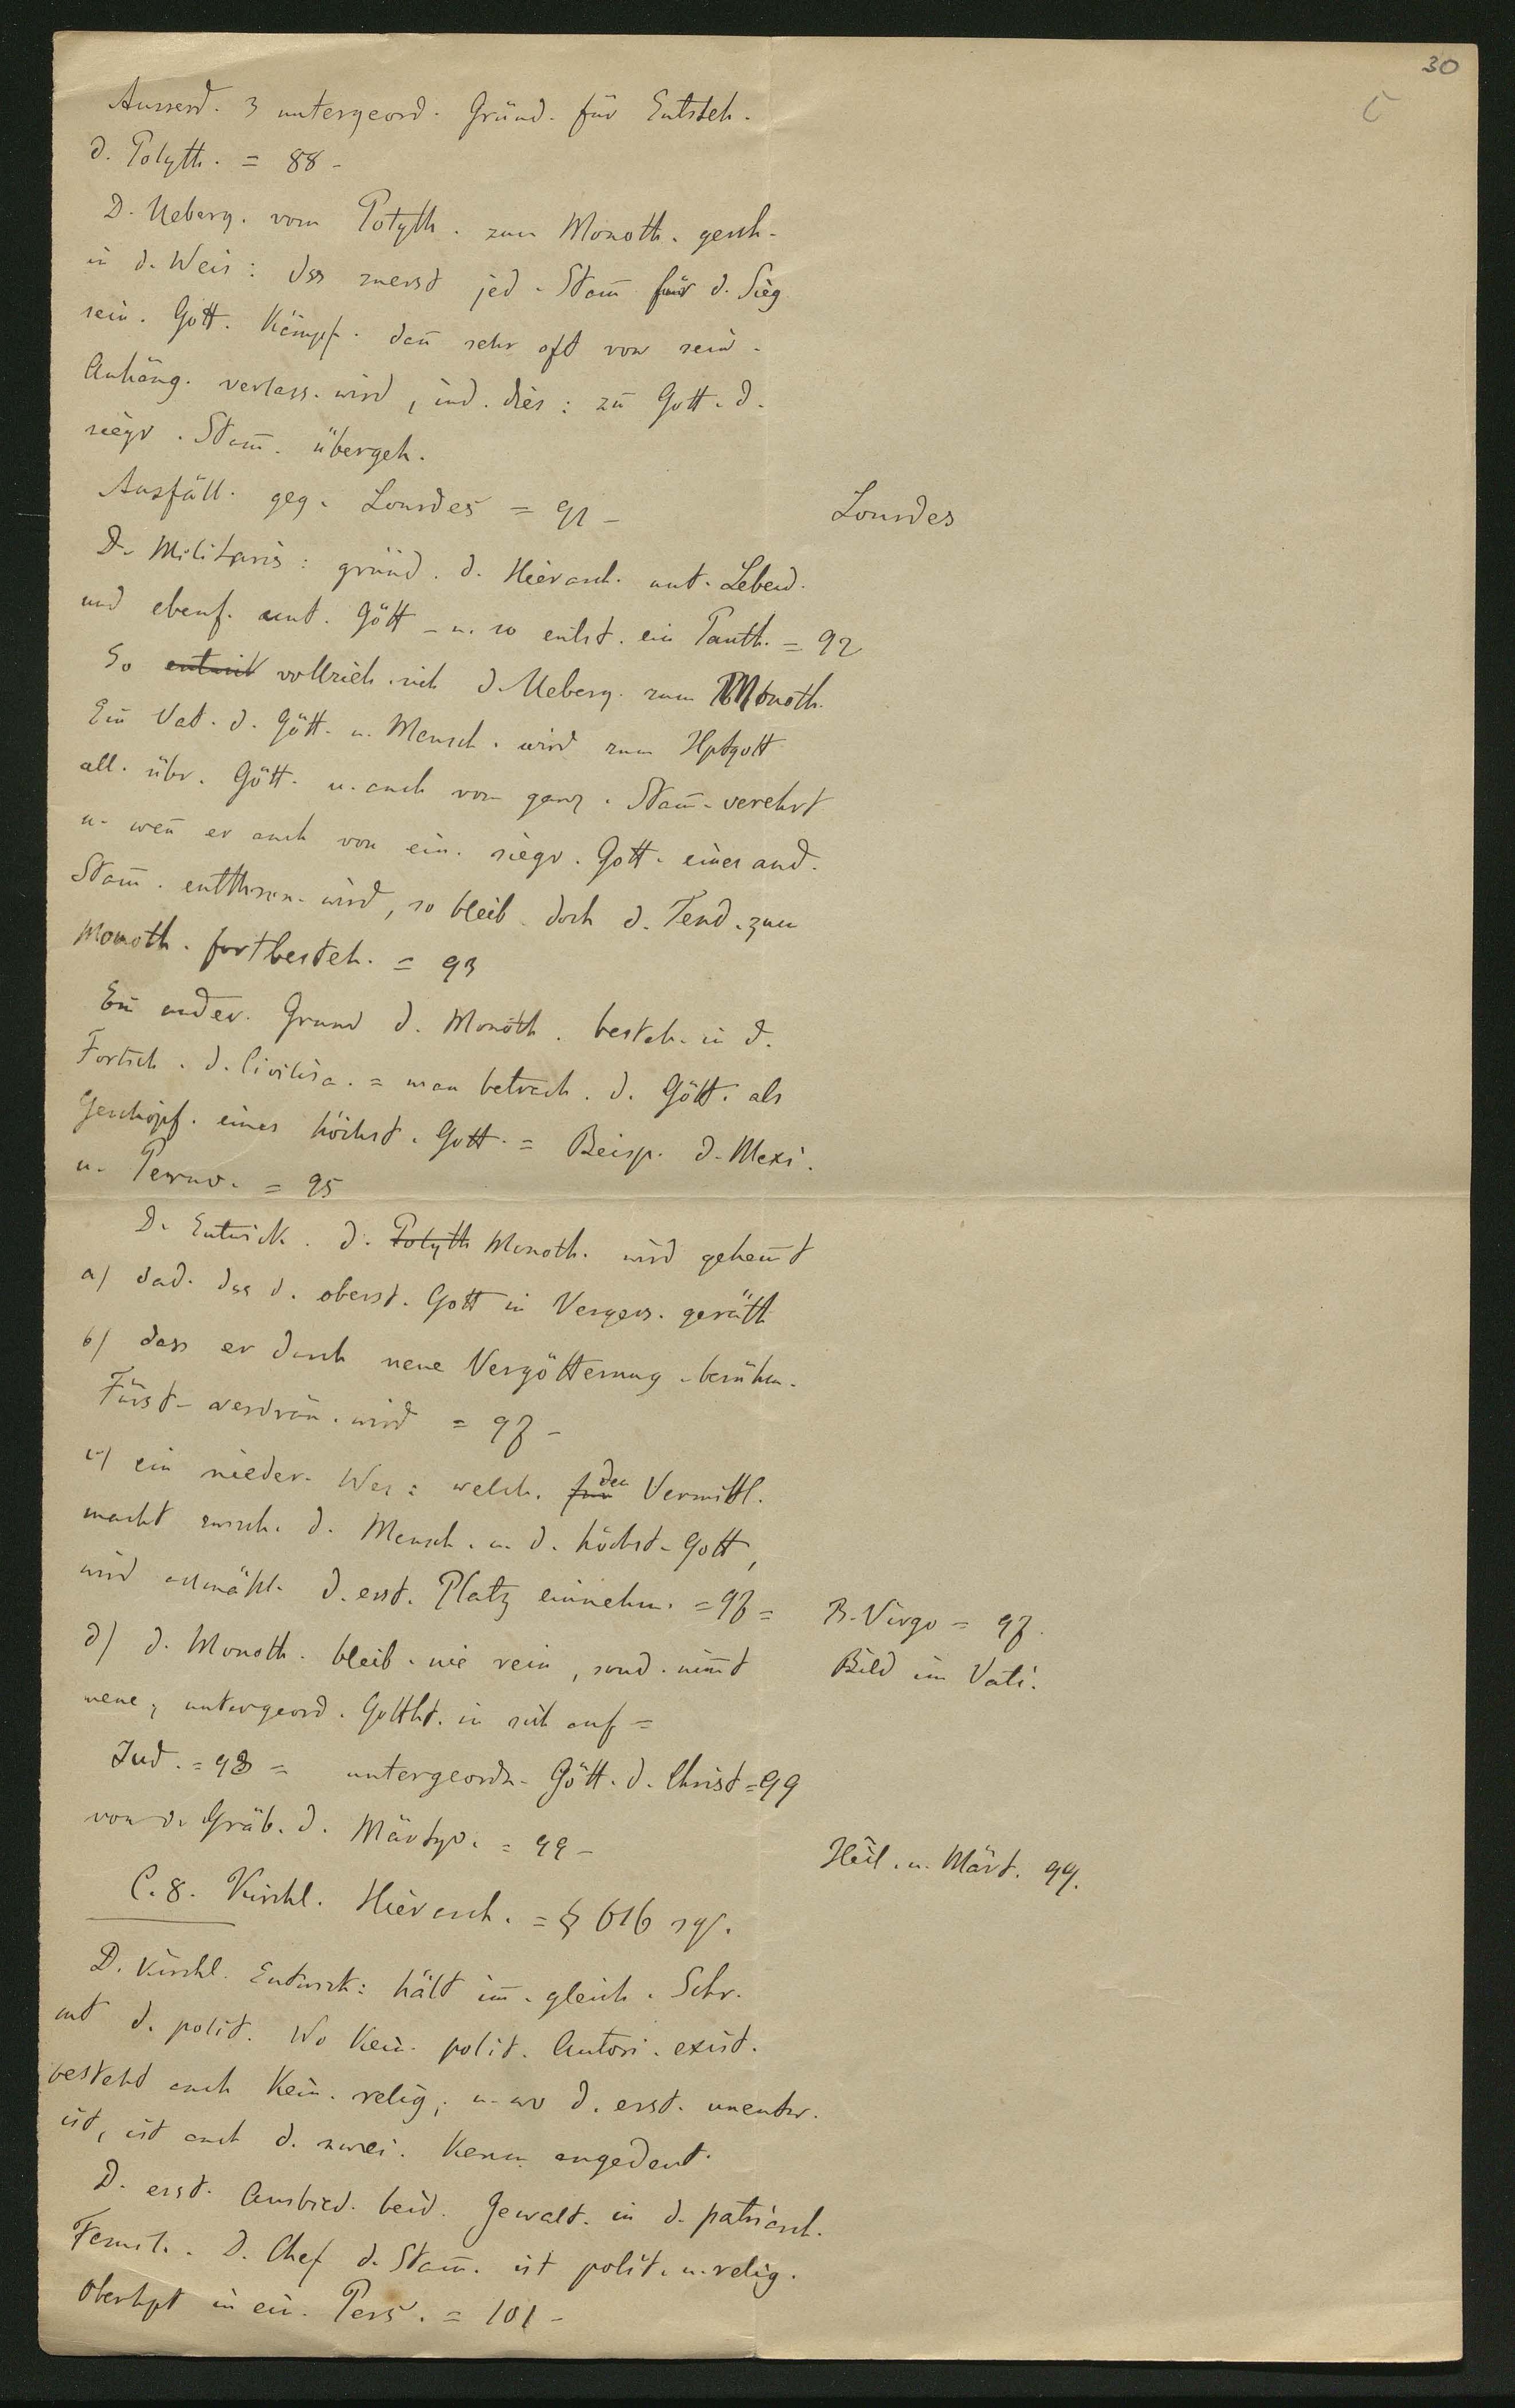 30
C
Ausserd. 3 untergeord. Gründ. für Entsteh.
d. Polyth. = 88 -
D. Ueberg. vom Polyth. zum Monoth. gesch.
in d. Weis: dss zuerst jed. Stam̅ für d. Sieg
sein. Gott. kämpf. dan̅ sehr oft von sein.
Anhäng. verlass. wird, ind. dies: zu̅ Gott. d.
siegr. Stam̅. übergeh.
Ausfäll. geg. Lourdes = 91 -
Lourdes
D. Militaris: gründ. d. Hierarch. unt. Lebend.
und ebenf. unt. Gött - u. so entst. ein Panth. = 92
So entwick vollzieh. sich d. Ueberg. zum Monoth.
Ein Vat. d. Gött. u. Mensch. wird zum Hptgott
all. übr. Gött. u. auch vom ganz. Stam̅. verehrt
u. wen̅ er auch von ein. siegr. Gott. eines and.
Stam̅. entthron. wird, so bleib. doch d. Tend. zum
Monoth. fortbesteh. = 93
Ein ander. Grund d. Monoth. besteh. in d.
Fortsch. d. Civilisa. = man betrach. d. Gött. als
Geschöpf. eines höchst. Gott. = Beisp. d. Mexi.
u. Peruv. = 95
D. Entwick. d. Polyth Monoth. wird gehem̅t
a) dad. dss d. oberst. Gott in Vergess. geräth
b) dass er durch neue Vergötterung berühm.
Fürst. verdrän. wird = 97 -
c) ein nieder. Wes: welch. für den Vermittl.
macht zwisch. d. Mensch. u. d. höchst. Gott,
wird allmähl. d. erst. Platz einnehm. = 97 =
B. Virgo = 97.
d) d. Monoth. bleib. nie rein, sond. nim̅t
Bild im Vati.
neue, untergeord. Gottht. in sich auf =
Jud. = 98 = untergeordn. Gött. d. Christ = 99
von d. Gräb. d. Märtyr. = 99 -
Heil. u. Märt. 99.
C. 8. Kirchl. Hierarch. = § 616 sq.
D. kirchl. Entwick: hält im̅. gleich. Schr.
mt d. polit. Wo kein. polit. Autori. exist.
besteht auch kein. relig; u. wo d. erst. unentw.
ist, ist auch d. zwei. kaum angedeut.
D. erst. Ausbild. beid. Gewalt. in d. patriarch.
Famil. D. Chef d. Stam̅. ist polit. u. relig.
Oberhpt in ein. Pers. = 101 -